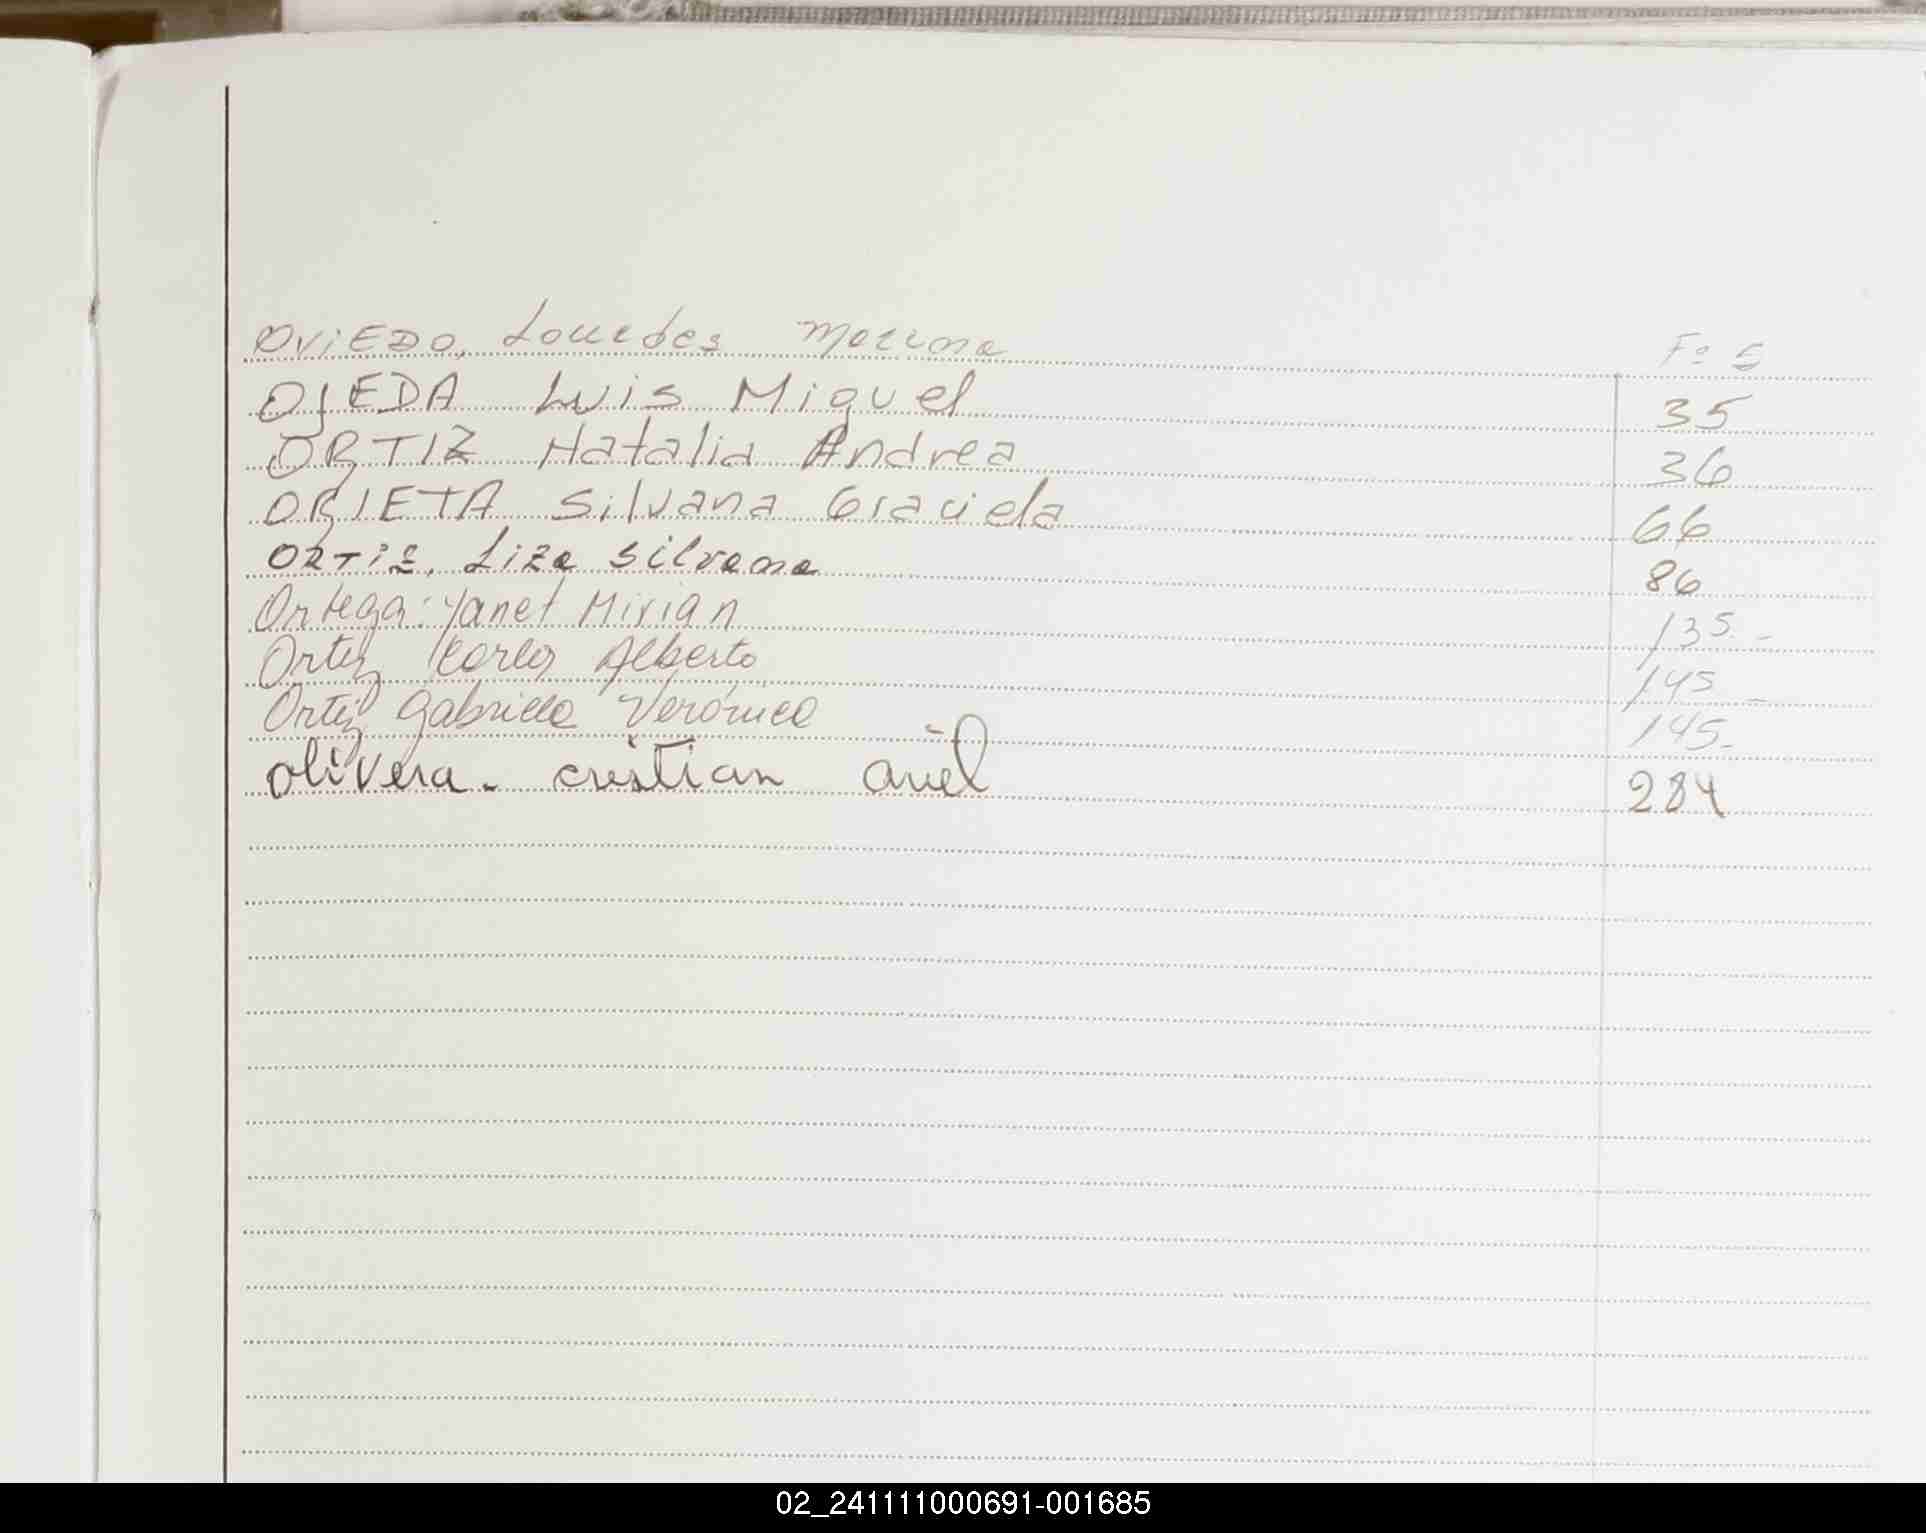 OVIEDO, Lourdes Mariana Fº 5
OJEDA Luis Miguel 35
ORTIZ Natalia Andrea 36
ORIETA Silvana Graciela 66
ORTIZ, Liza Silvana 86
Ortega: Yanet Mirian 135.-
Ortiz Carlos Alberto 145.-
Ortiz Gabriela Verónica 145.-
olivera - cristian ariel 284
02_241111000691-001685